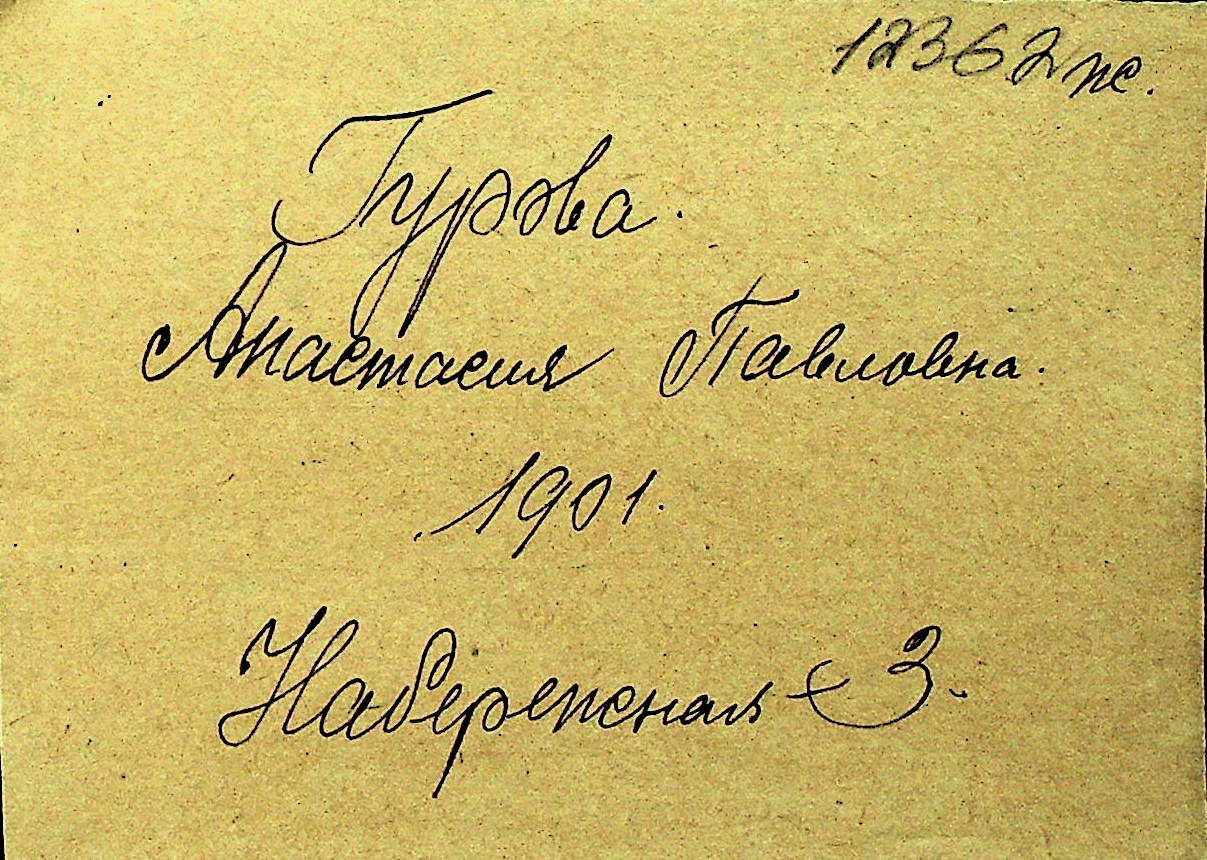 12362 пс.
Гурова.
Анастасия Павловна.
1901.
Набережная - 3.